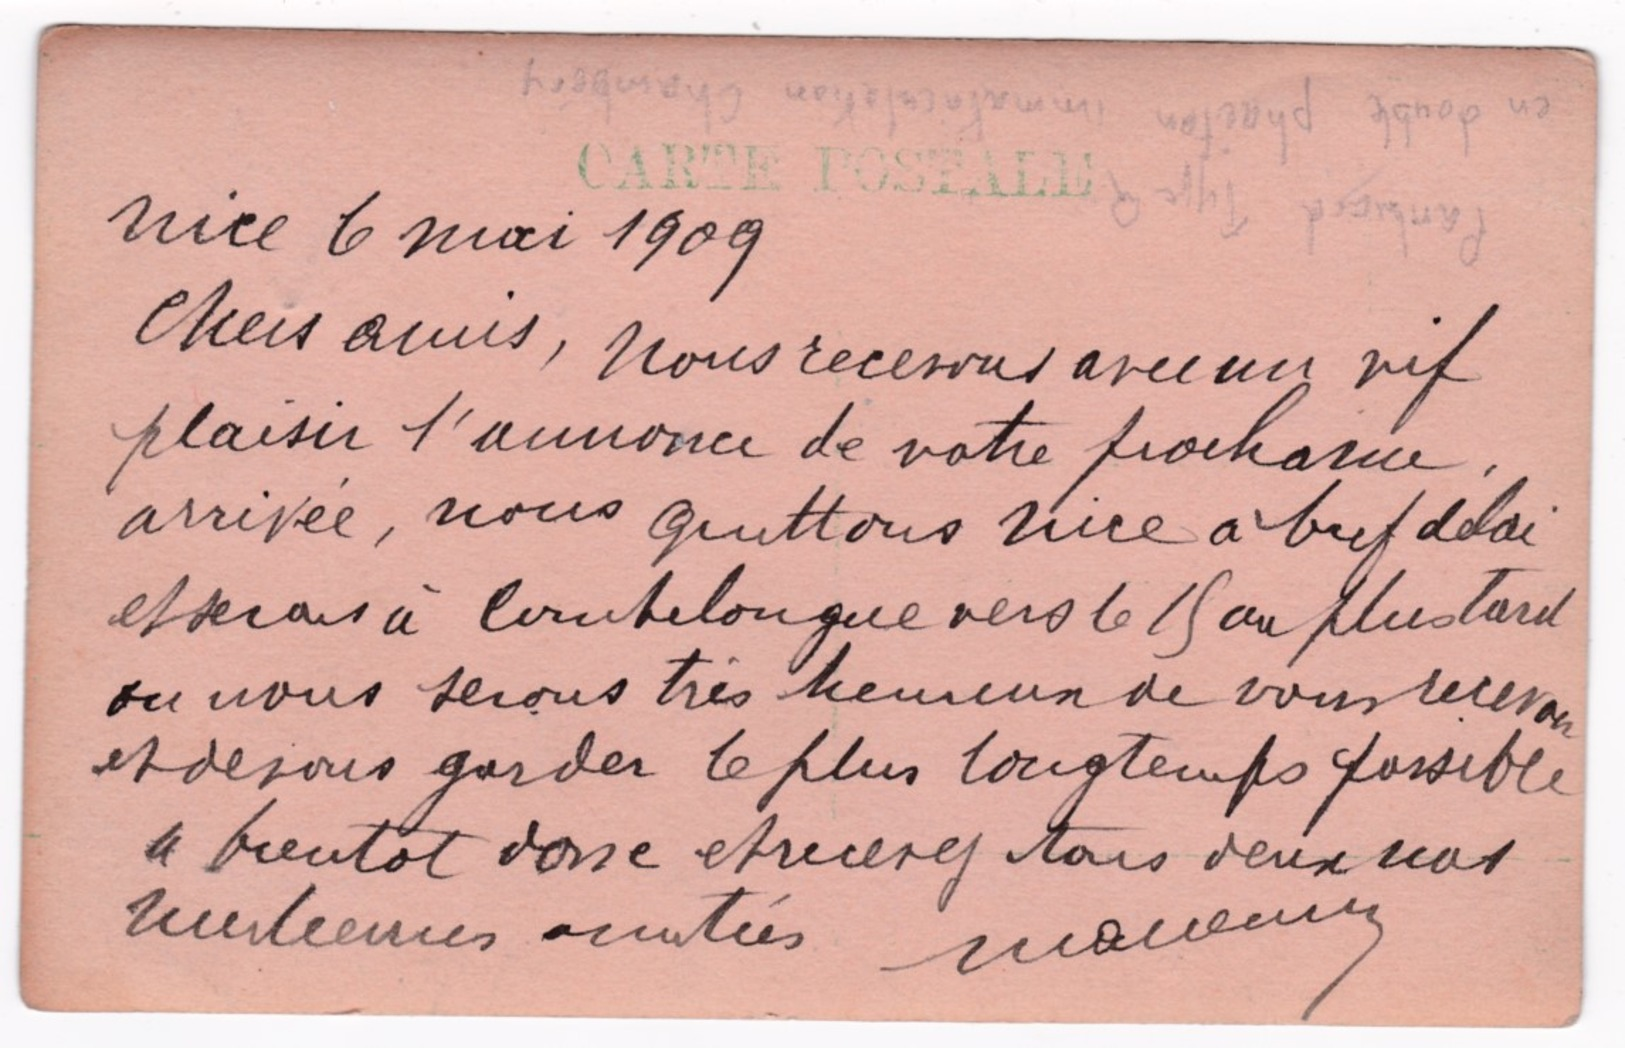 en double phaeton immatriculation Chambéry
Panhard Type Q
CARTE POSTALE
Nice 6 mai 1909
Chers amis, nous recevons avec un vif
plaisir l'annonce de votre prochaine,
arrivée, nous quittons Nice à bref délai
et serons à Combelongue vers le 15 au plus tard
ou nous serons très heureux de vous recevoir
et de vous garder le plus longtemps possible
a bientot donc et recevez tous deux nos
meilleures amitiés